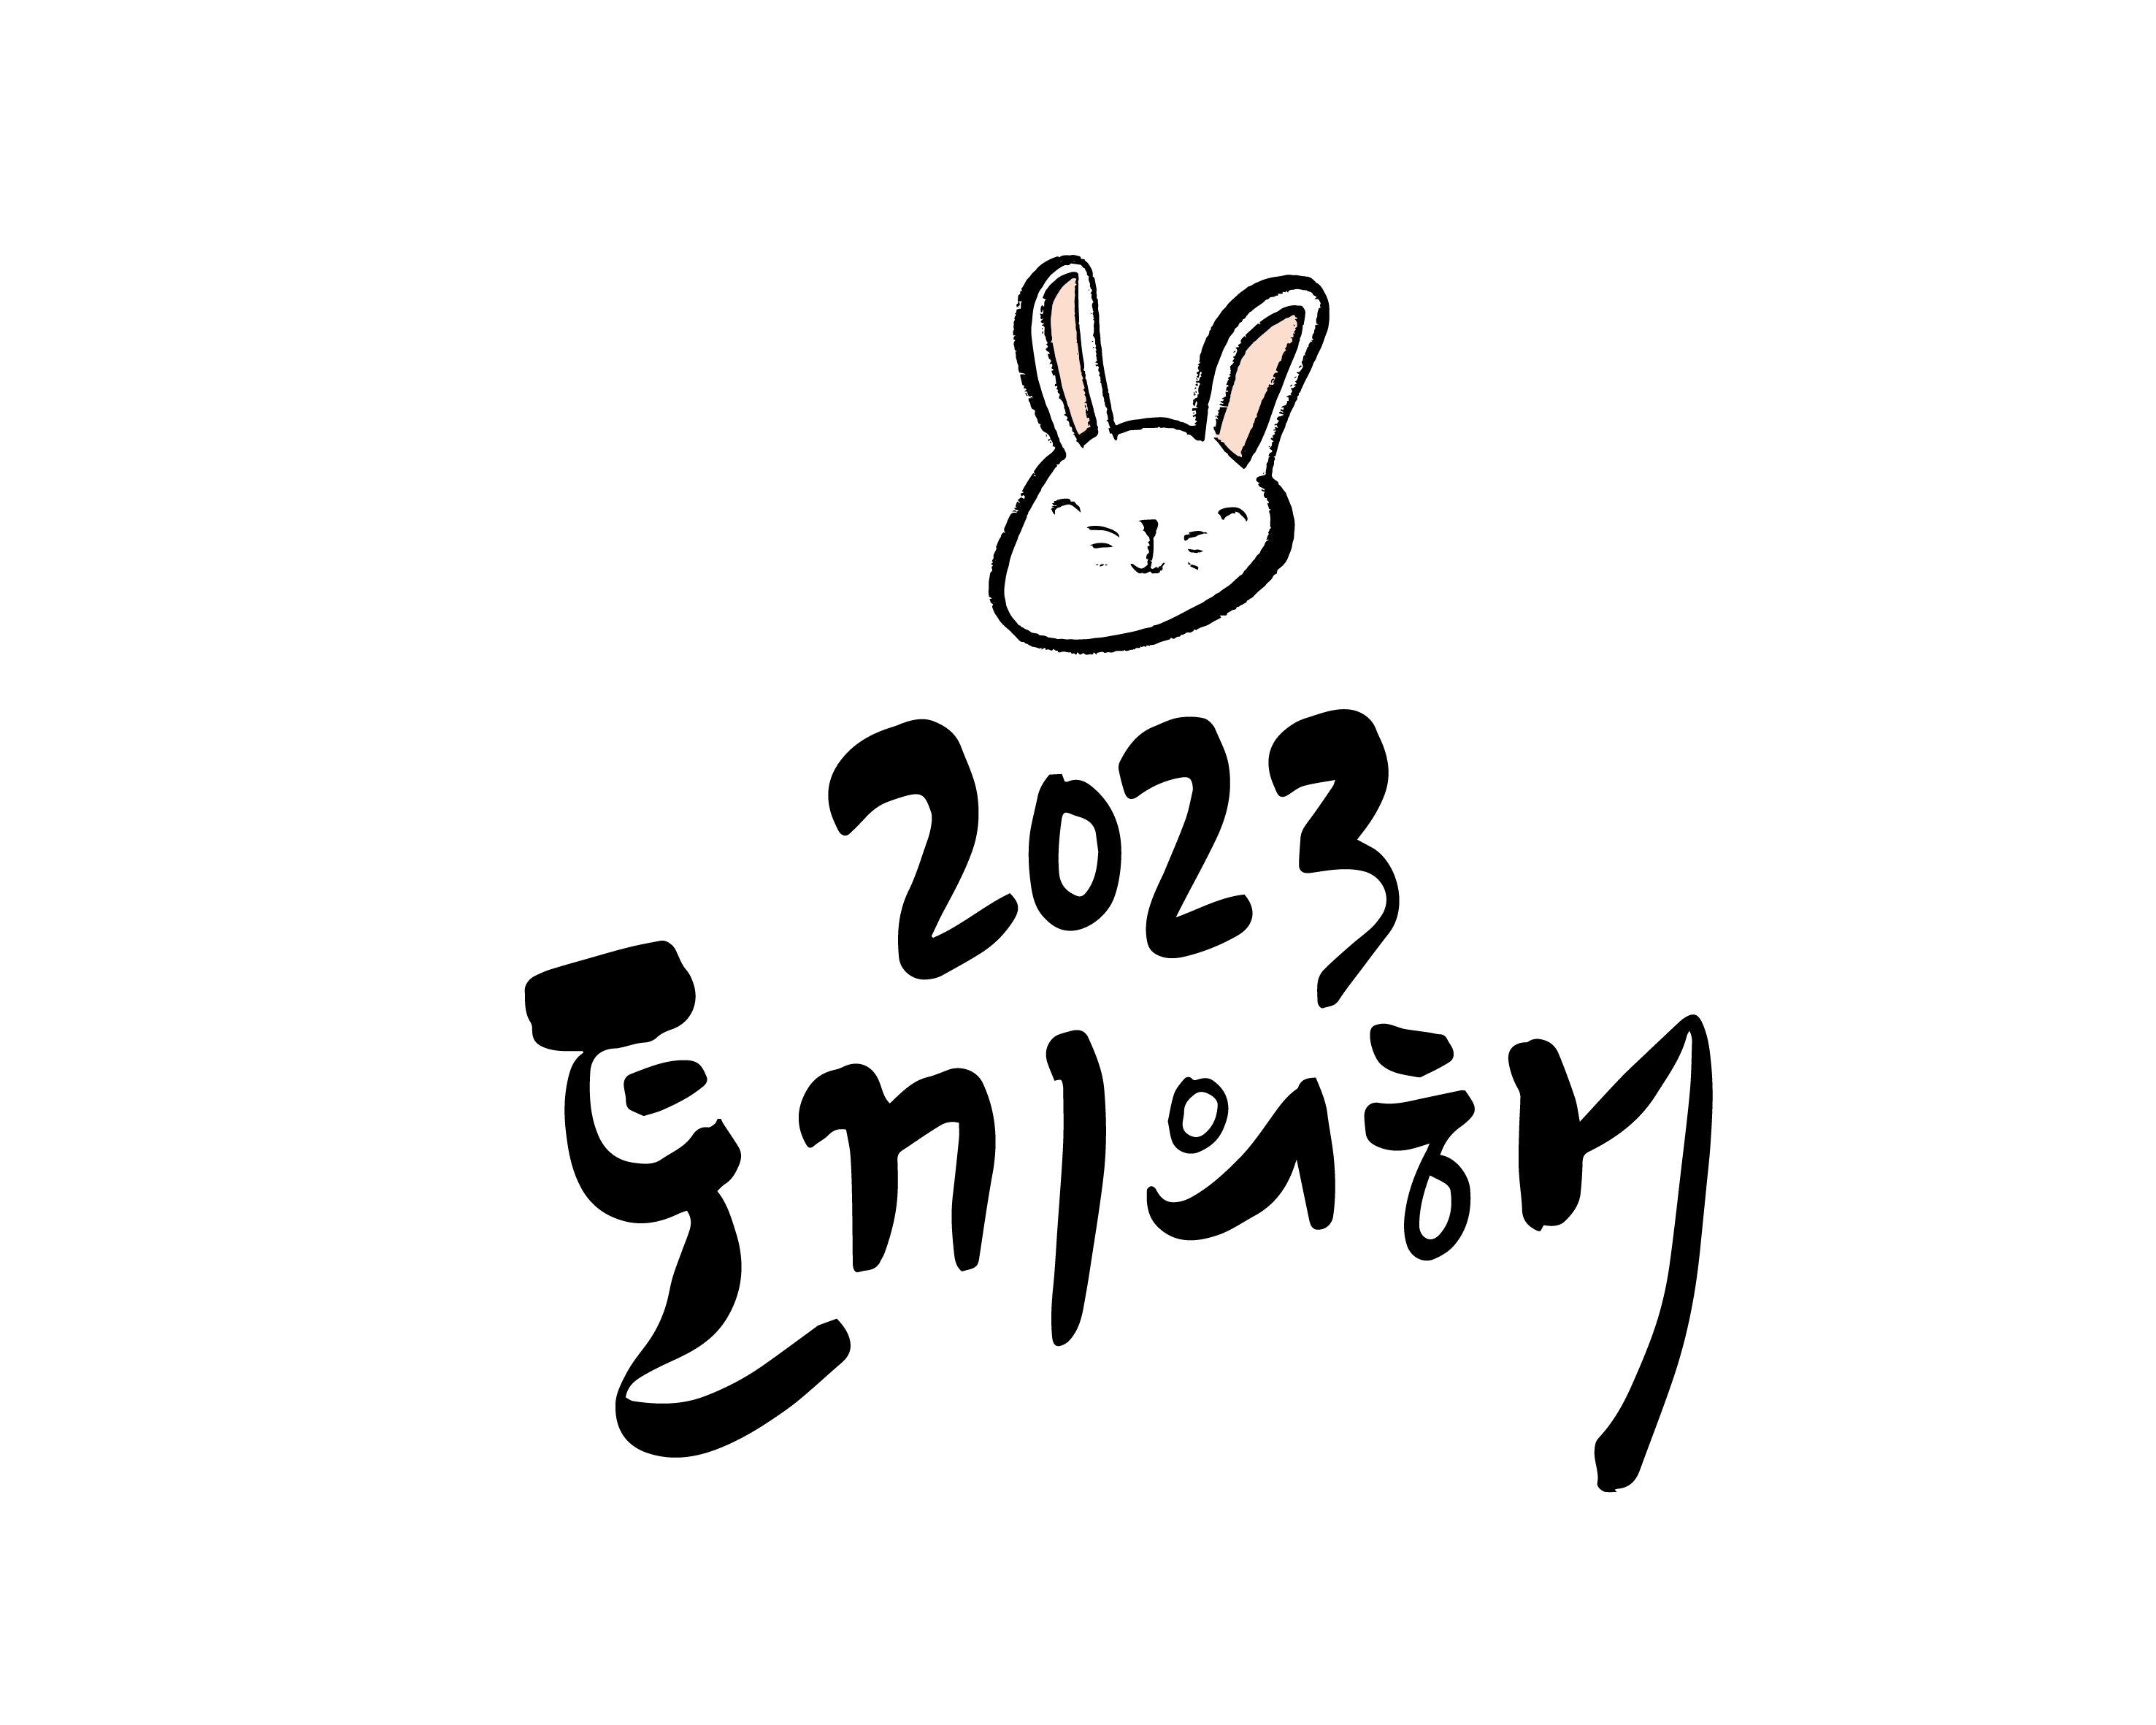 2023
토끼의해